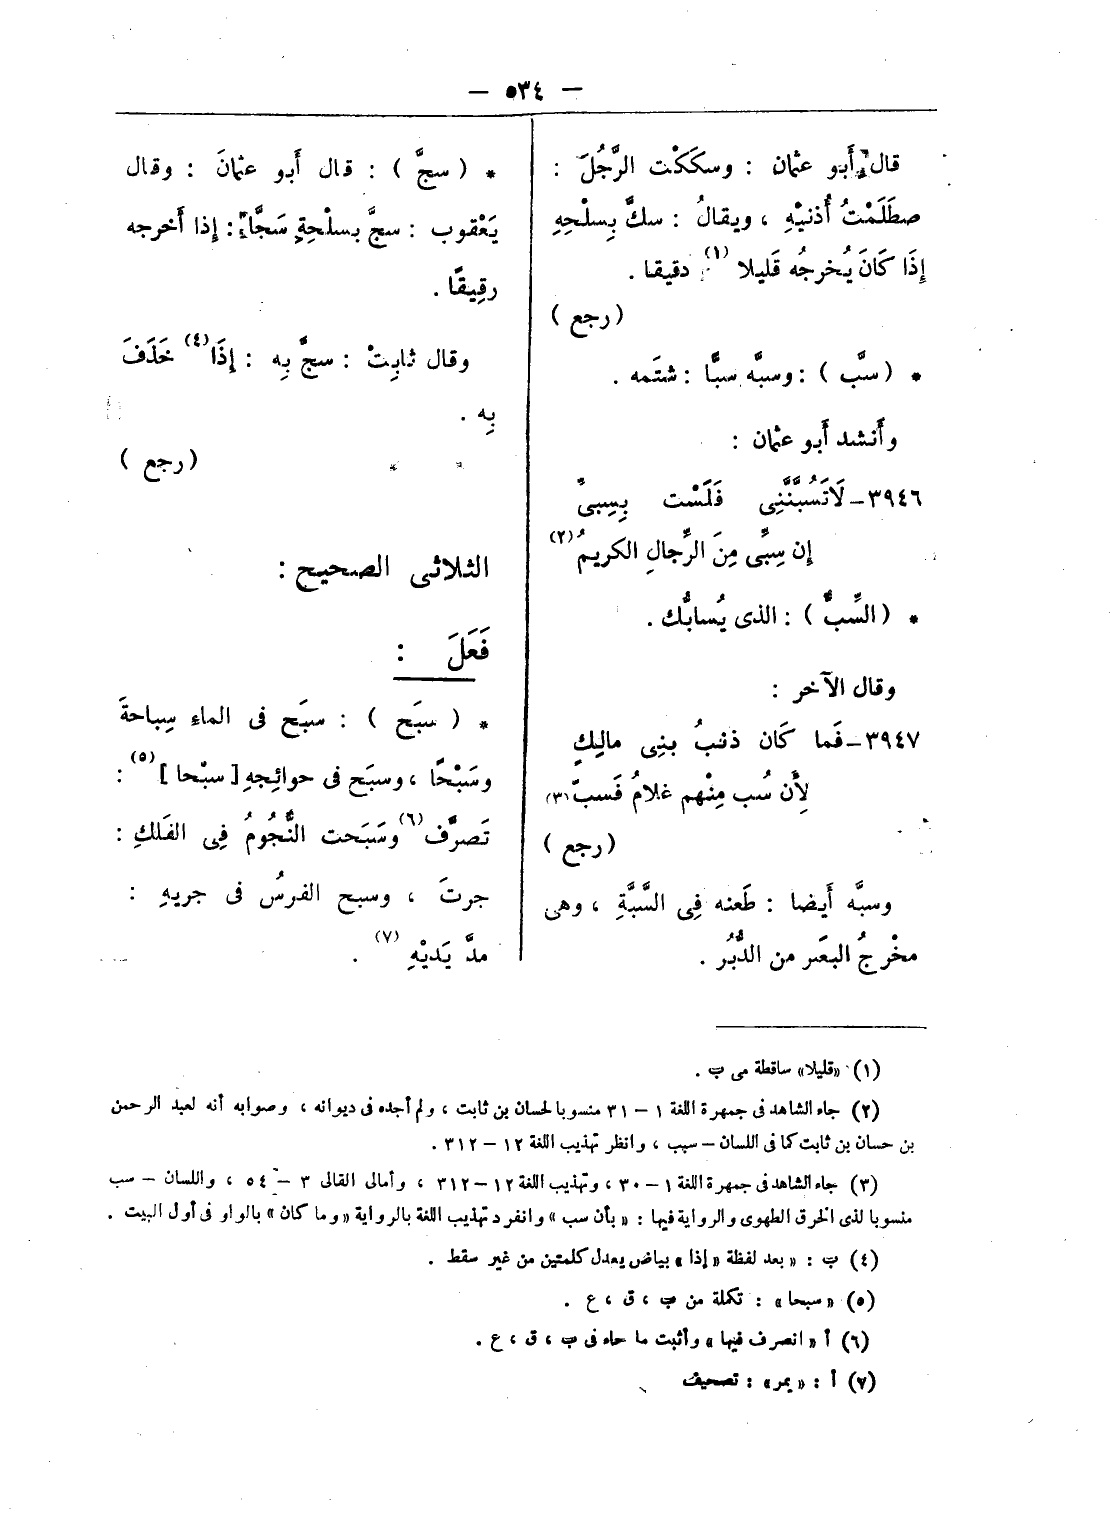 — ٥٣٤ —
قال أَبو عثمان : وسكَكْت الرَّجُلَ :
صطَلَمْتُ أُذنيْهِ ، ويقالُ : سكَّ بِسلْحِهِ
إِذَا كَانَ يُخرجُه قَليلا (١) دقيقا .
( رجع )
* ( سبَّ ) : وسبَّه سبًّا : شتَمه .
وأَنشد أَبو عثمان :
٣٩٤٦ – لَاتَسُبَّنَّنِى فَلَسْت بِسِبىِّ
إِن سِبِّى مِنَ الرِّجالِ الكريمُ (٢)
* ( السِّبُّ ) : الذى يُسابُّك .
وقال الآخر :
٣٩٤٧ – فَما كَان ذنبُ بنِى مالِكٍ
لِأَن سُب مِنْهم غلامُ فَسبّ (٣)
( رجع )
وسبَّه أَيضا : طَعنه فِى السَّبَّةِ ، وهى
مخْرجُ البعَر من الدُّبُر .
* ( سجَّ ) : قال أَبو عثمانَ : وقال
يَعْقوب : سجَّ بسلْحِهِ سَجًّا : إِذا أَخرجه
رقِيقًا .
وقال ثابِتْ : سجَّ بِه : إِذَا (٤) خَذَفَ
بِه .
( رجع )
الثلاثى الصحيح :
فَعَلَ :
* ( سبَح ) : سبَح فى الماءِ سِباحةً
وسَبْحًا ، وسبَح فى حوائِجهِ [ سبْحا ] (٥) :
تَصرَّف (٦) وسَبَحت النُّجُومُ فِى الفَلكِ :
جرتَ ، وسبح الفرسُ فى جريهِ :
مدَّ يَديْهِ (٧) .
(١) «قليلا» ساقطة من ب .
(٢) جاء الشاهد فى جمهرة اللغة ١ – ٣١ منسوبا لحسان بن ثابت ، ولم أجده فى ديوانه ، وصوابه أنه لعبد الرحمن
بن حسان بن ثابت كما فى اللسان – سبب ، وانظر تهذيب اللغة ١٢ – ٣١٢ .
(٣) جاء الشاهد فى جمهرة اللغة ١ – ٣٠ ، وتهذيب اللغة ١٢ – ٣١٢ ، وأمالى القالى ٣ – ٥٤ ، واللسان – سب
منسوبا لذى الخرق الطهوى والرواية فيها : « بأن سب » وانفرد تهذيب اللغة بالرواية «وما كان» بالواو فى أول البيت .
(٤) ب : « بعد لفظة «إذا» بياض يعدل كلمتين من غير سقط .
(٥) «سبحا» : تكملة من ب ، ق ، ع .
(٦) أ « انصرف فيها» وأثبت ما جاء فى ب ، ق ، ع .
(٧) أ : «يمر» : تصحيف